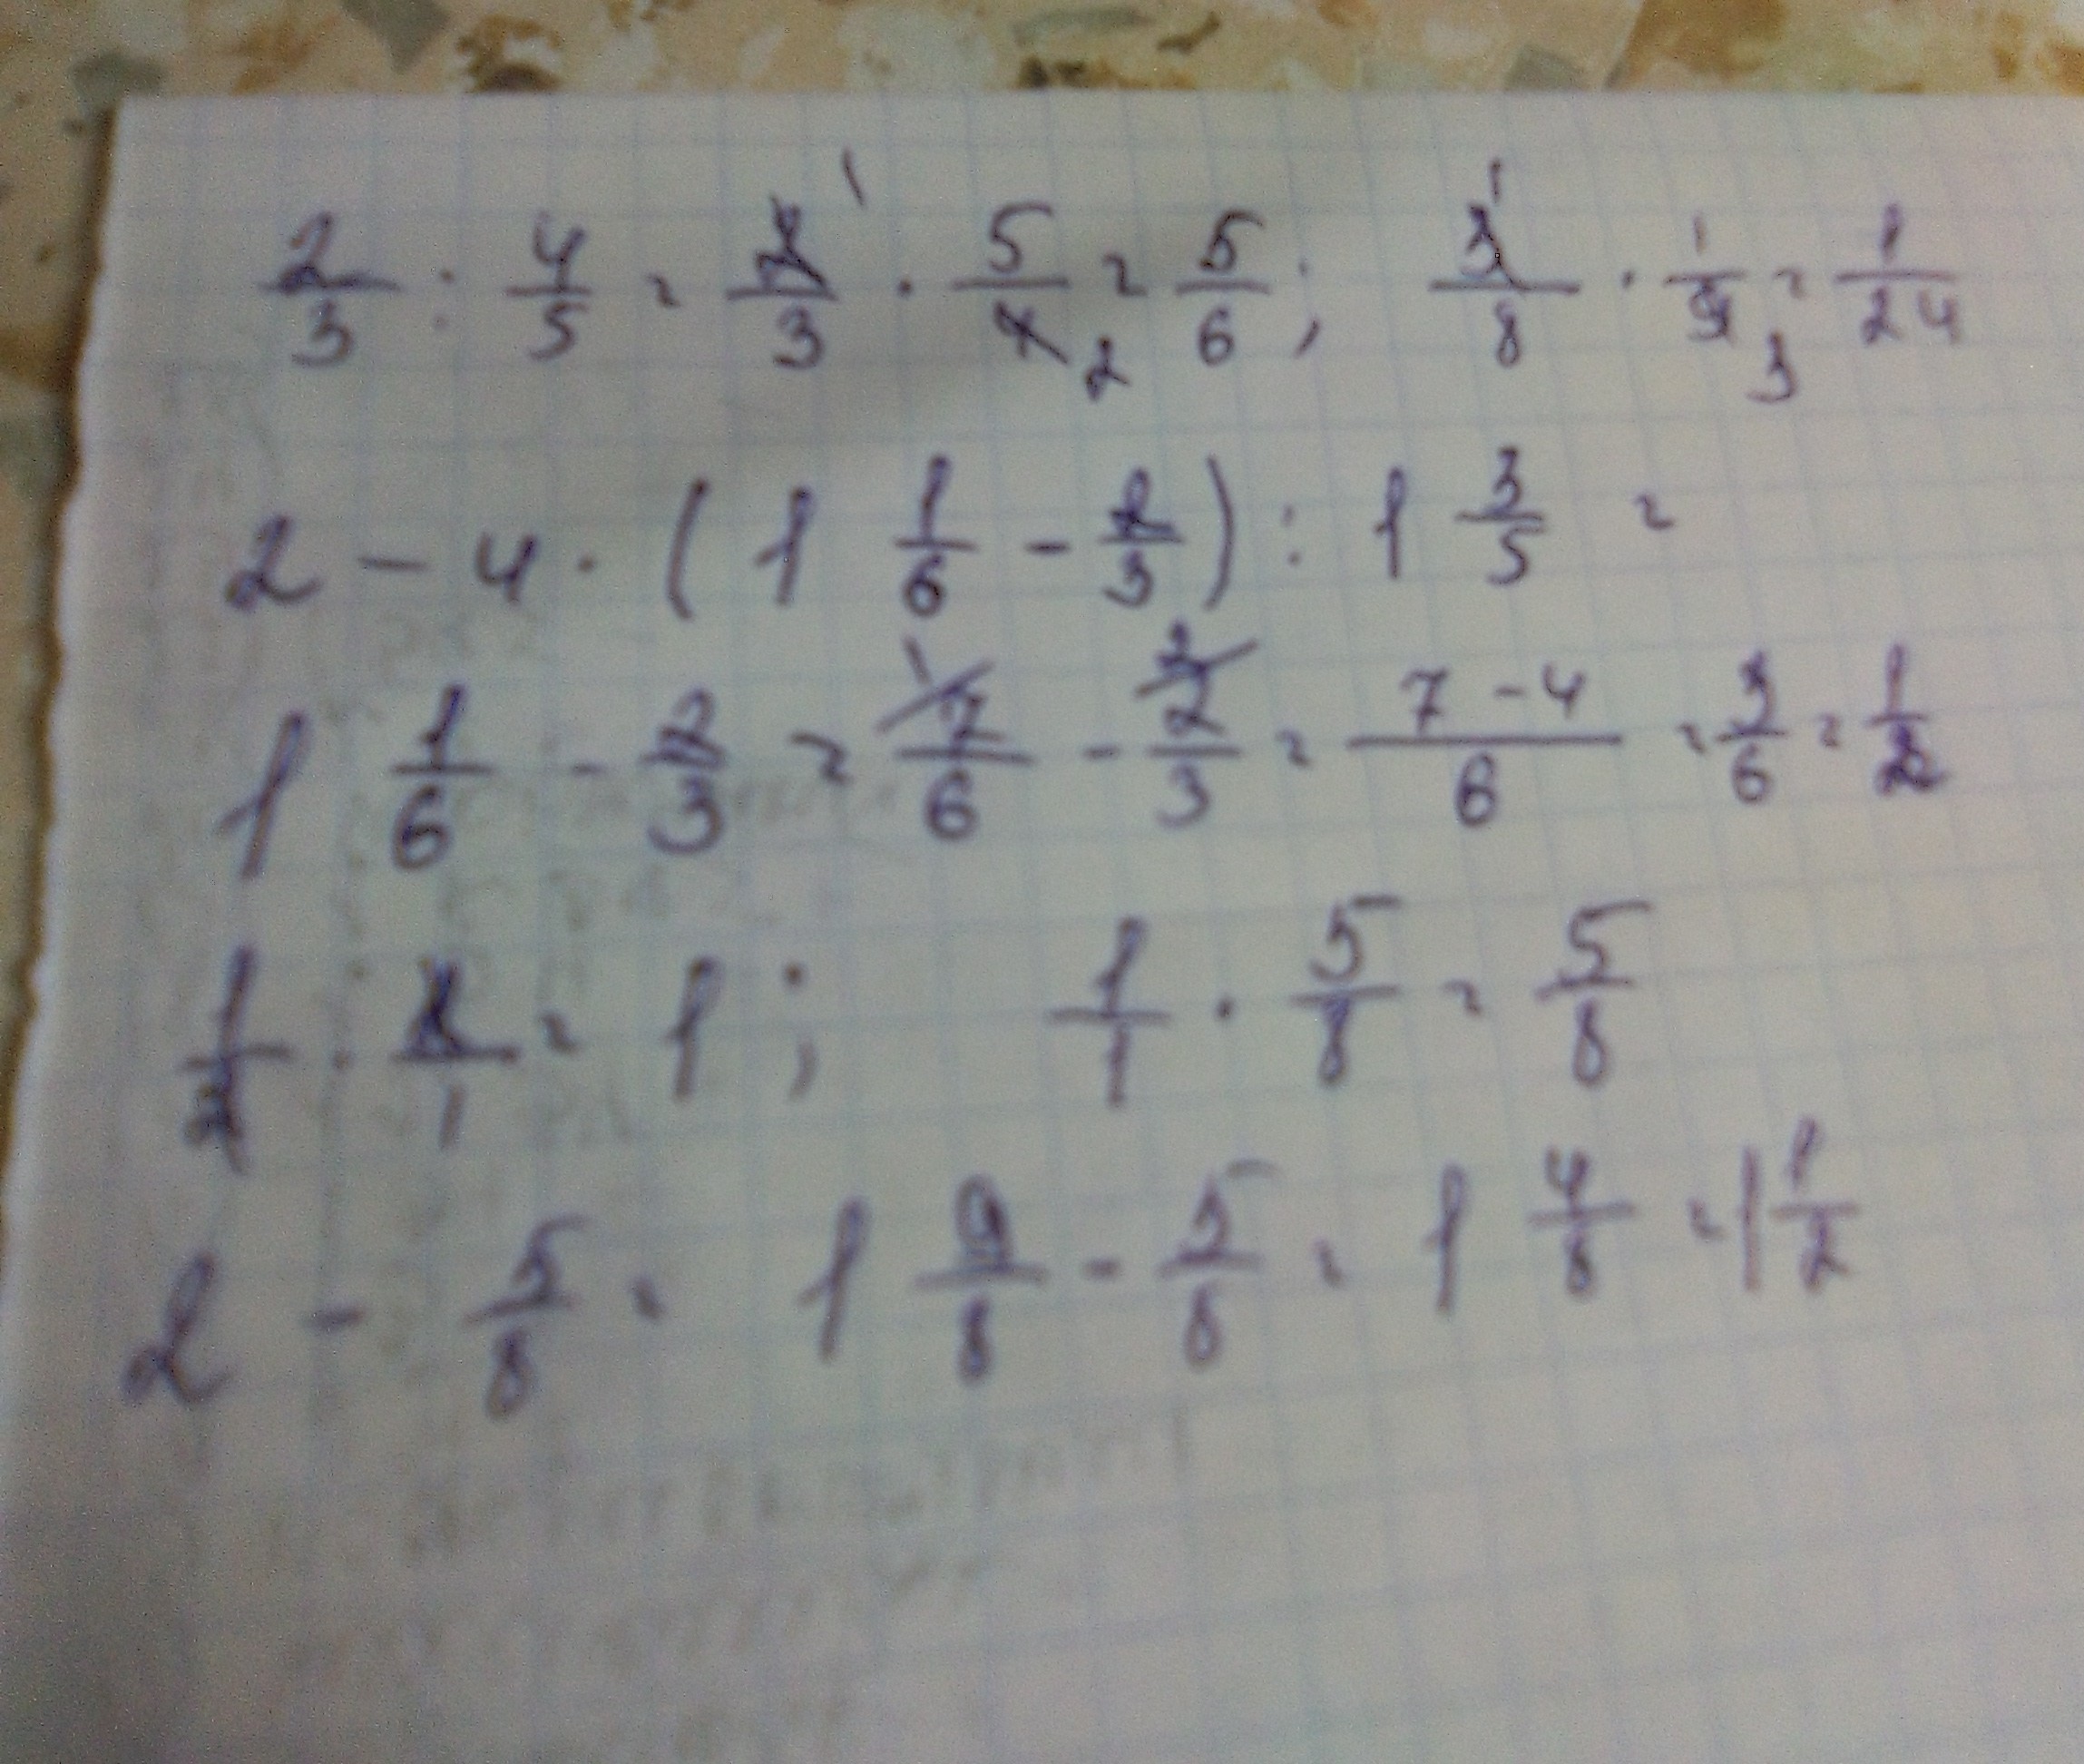 2/3 : 4/5 = 2/3 ¹ · 5/4 ₂ = 5/6 ; 3¹/8 · 1/9 ₃ = 1/24
2 - 4 · ( 1 1/6 - 2/3 ) : 1 3/5 =
1 1/6 - 2/3 = ¹ 7/6 - ² 2/3 = (7 - 4)/6 = 3/6 = 1/2
1/2 · 2/1 = 1 ; 1/1 · 5/8 = 5/8
2 - 5/8 = 1 9/8 - 5/8 = 1 4/8 = 1 1/2